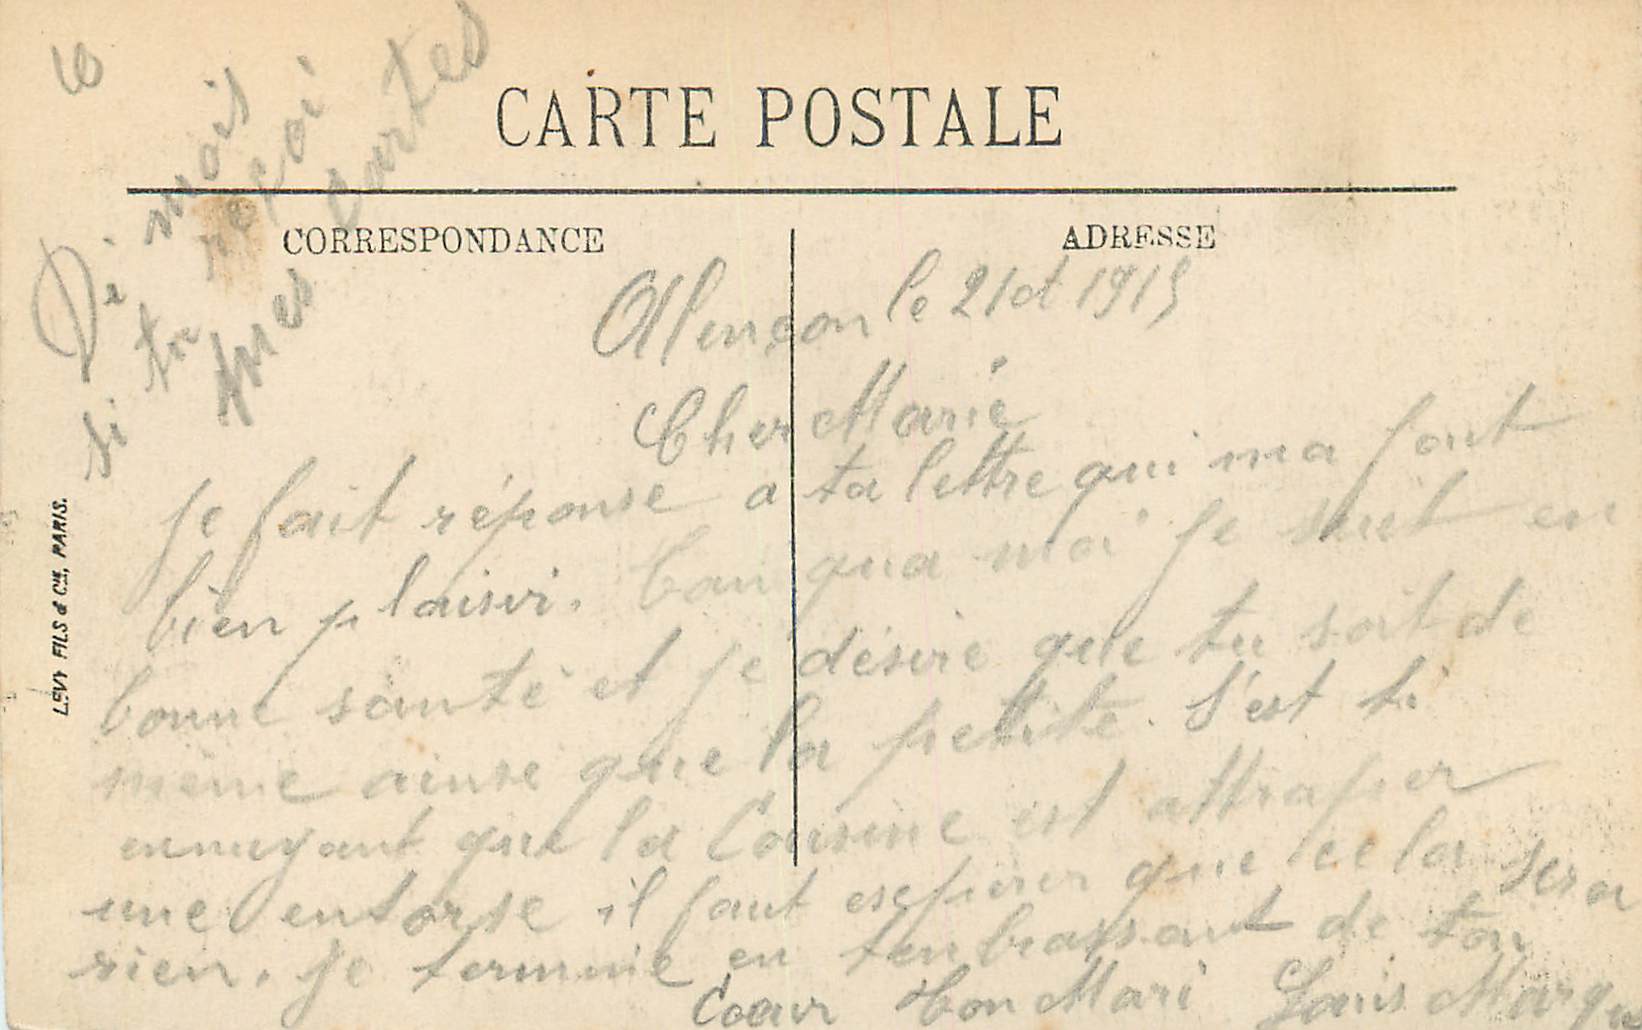 CARTE POSTALE
CORRESPONDANCE
ADRESSE
LEVY FILS & Cie, PARIS.
10
Di mois
si tu reçoi
mes cartes
Alençon le 21 1915
Cher Marie
Je fait réponse a ta lettre qui ma fout
bien plaisir. Can qua moi Je suit en
bonne santé et je désire que tu soit de
même ainse que la petite. S'est ti
ennuyant que la Cousine est attraper
une entorse il faut esperer que ce la sera
rien. Je termine en tenbrassant de ton
Coeur ton Mari Louis